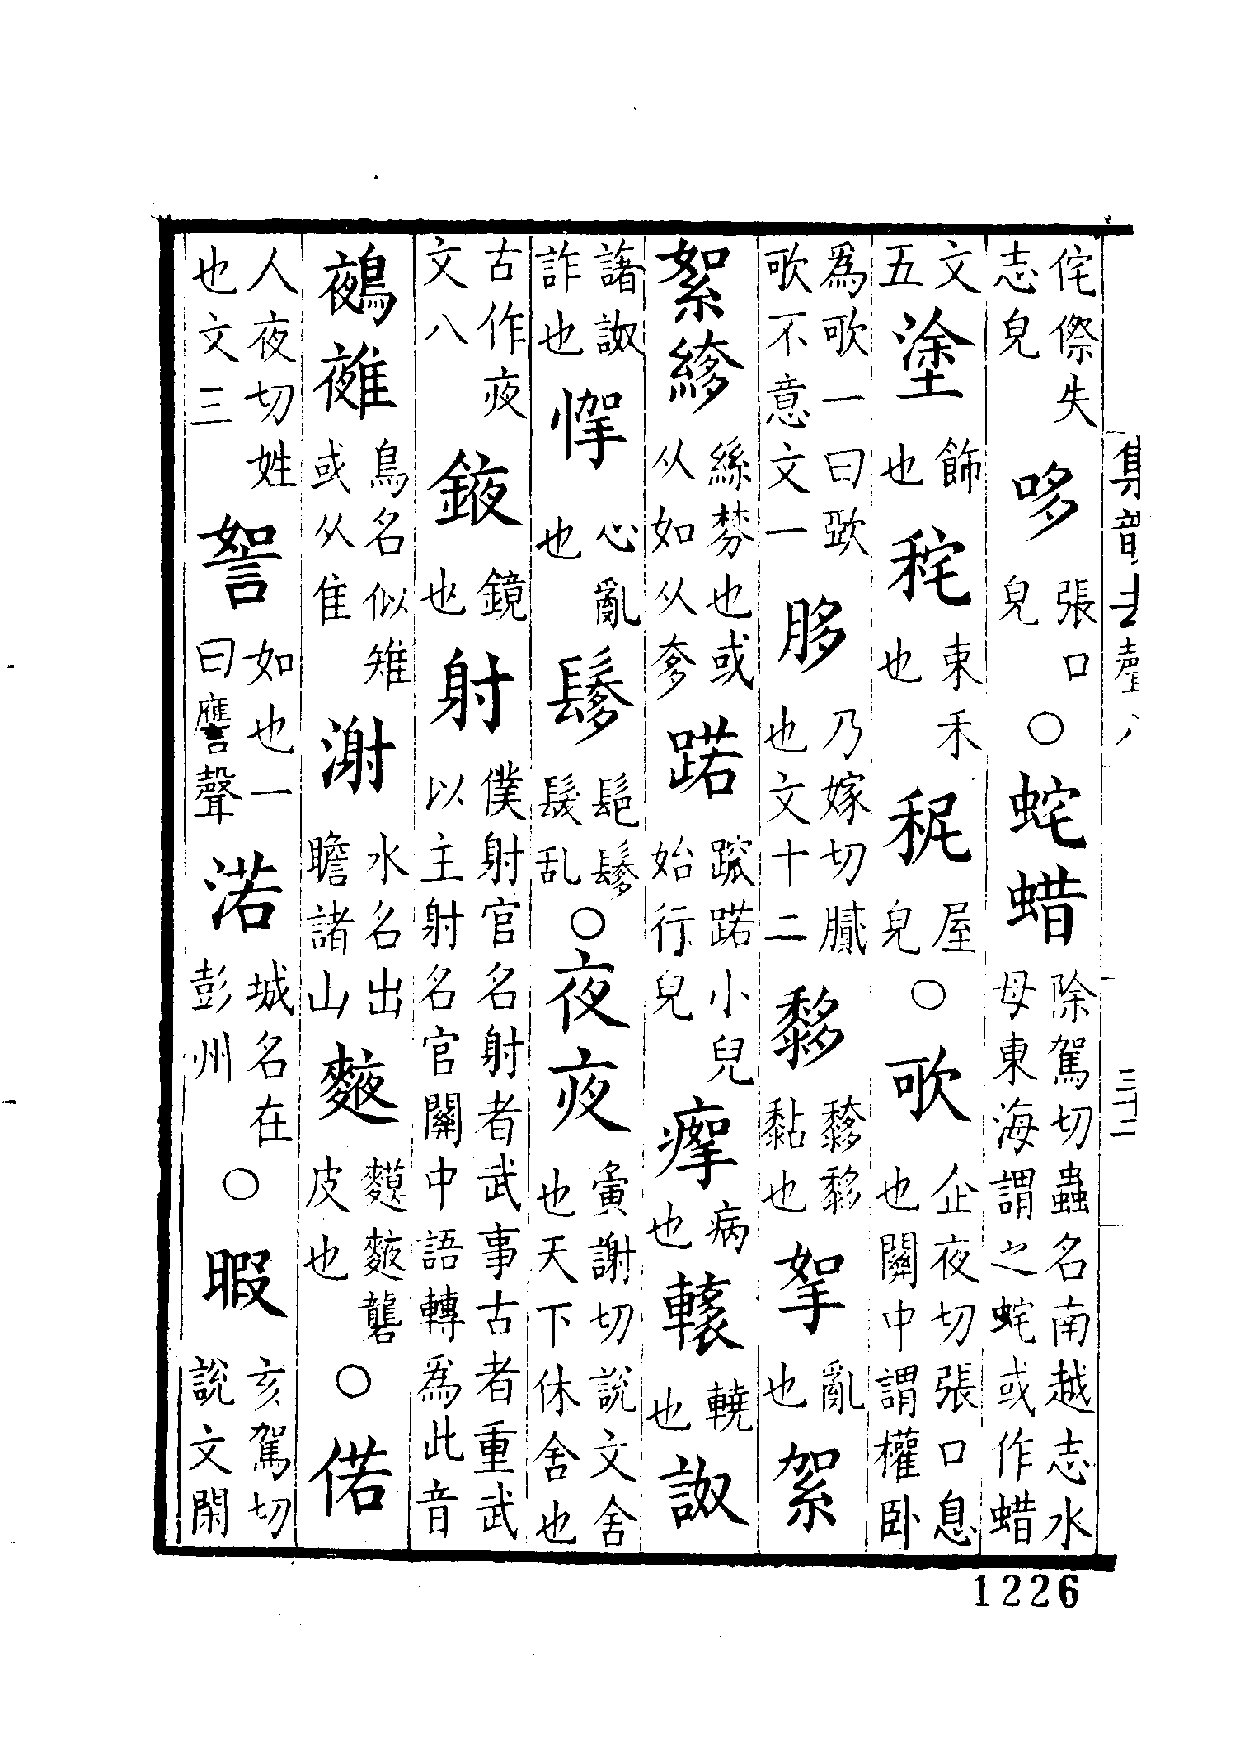 侘傺失志皃 哆 張口皃 〇 蛇蜡 除駕切蟲名南越志水母東海謂之蛇或作蜡
文五 塗 飾也 秺 束禾也 秜 屋皃 〇 歌 企夜切張口息也關中謂權卧
爲歌一曰歐歌不意文一 䏧 乃嫁切膩也文十二 䵑 黏也 挐 亂也 絮
絮䋾 絲棼也或从如从奓 踞 小兒始行皃 㾰 病也 轅 轅也 詉
譇詉詐也 㤞 心亂也 鬖 髮乱 〇 夜㚑 夤謝切說文舍也天下休舍也
古作㚑文八 鋊 鏡也 射 僕射官名射者武事古者重武以主射名官關中語轉爲此音
鵺䧿 鳥名似雉或从隹 㴬 水名出瞻諸山 䴬 皮也 〇 偌
人夜切姓也文三 䛔 如也一曰譍聲 渃 城名在彭州 〇 暇 亥駕切說文閑
集韻去聲八 三十二
1226